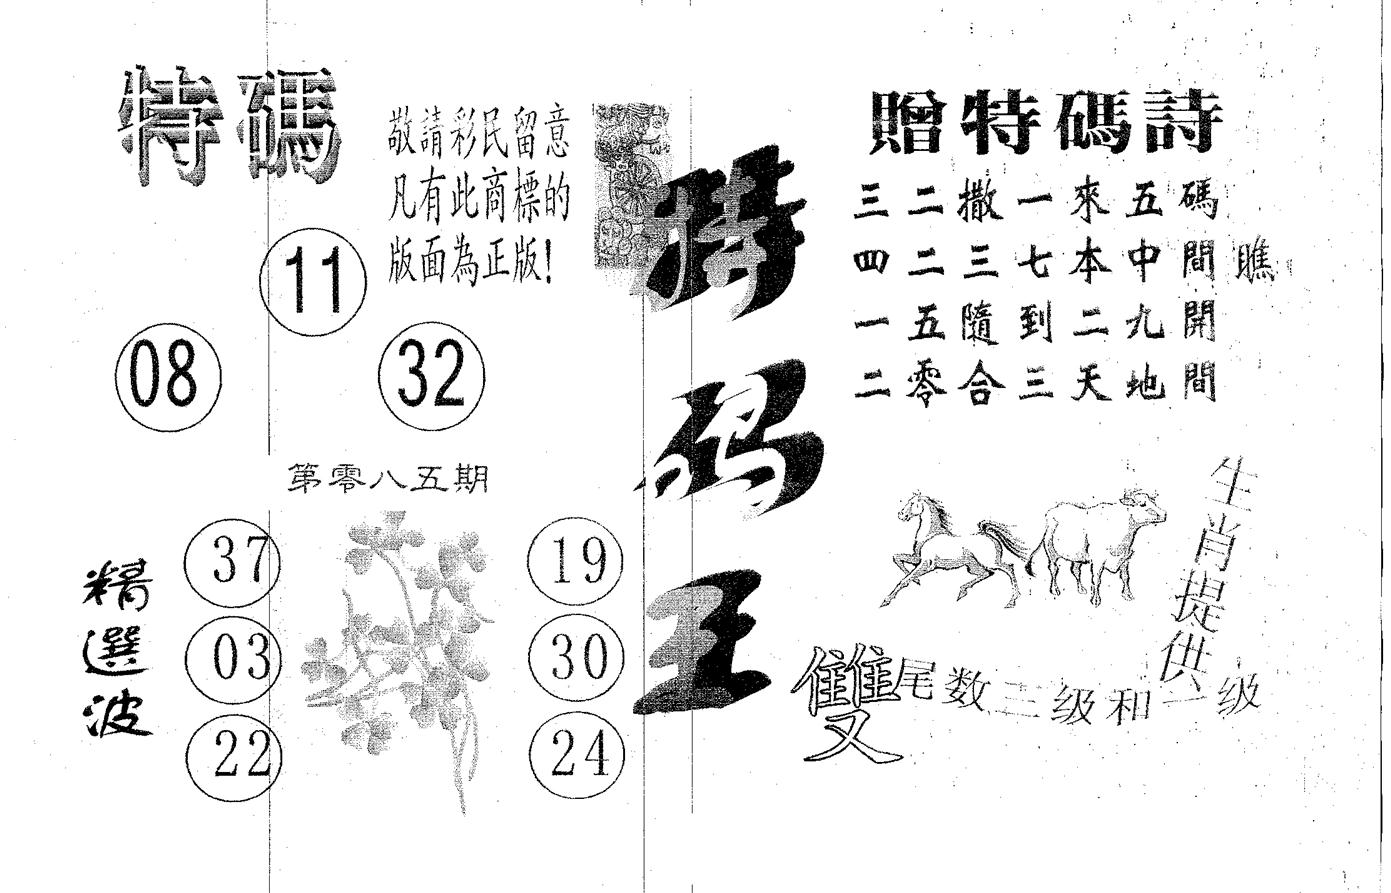 特碼
敬請彩民留意
凡有此商標的
版面為正版!
11
08
32
第零八五期
精選波
37
03
22
19
30
24
特码王
贈特碼詩
三二撒一來五碼
四二三七本中間瞧
一五隨到二九開
二零合三天地間
生肖提供
雙尾数二级和一级